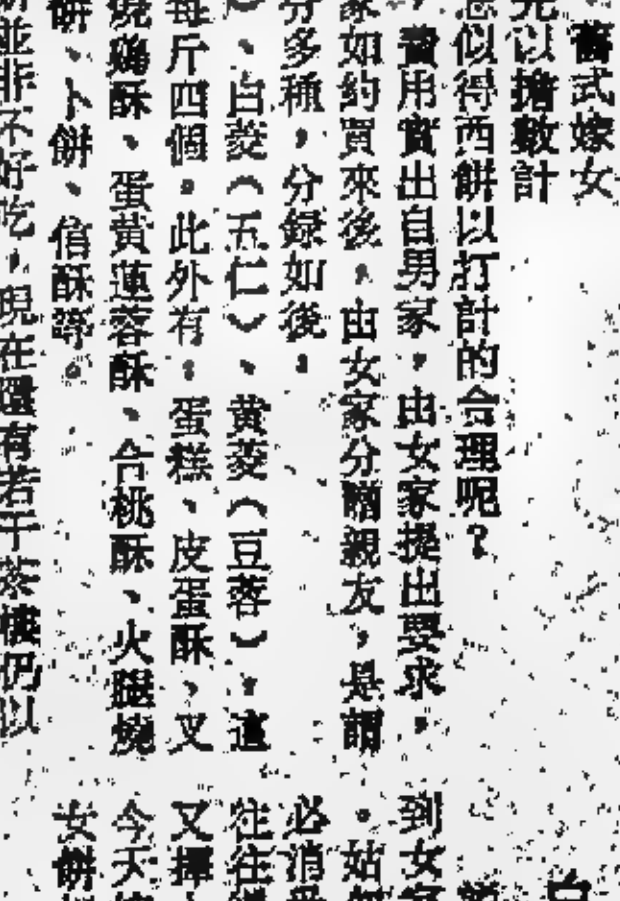 舊式嫁女
以擔數計
似得西餅以打計的合理呢？
，費用實出自男家，由女家提出要求，
家如約買來後，由女家分贈親友，是謂
分多種，分録如後：
、白菱（五仁）、黃菱（豆蓉），這
每斤四個。此外有：蛋糕、皮蛋酥、又
燒鷄酥、蛋黃蓮蓉酥、合桃酥、火腿燒
餅、卜餅、信酥等。
並非不好吃，現在還有若干茶樓仍以
到女家
。姑
必消
往往
又擇
今天
女餅